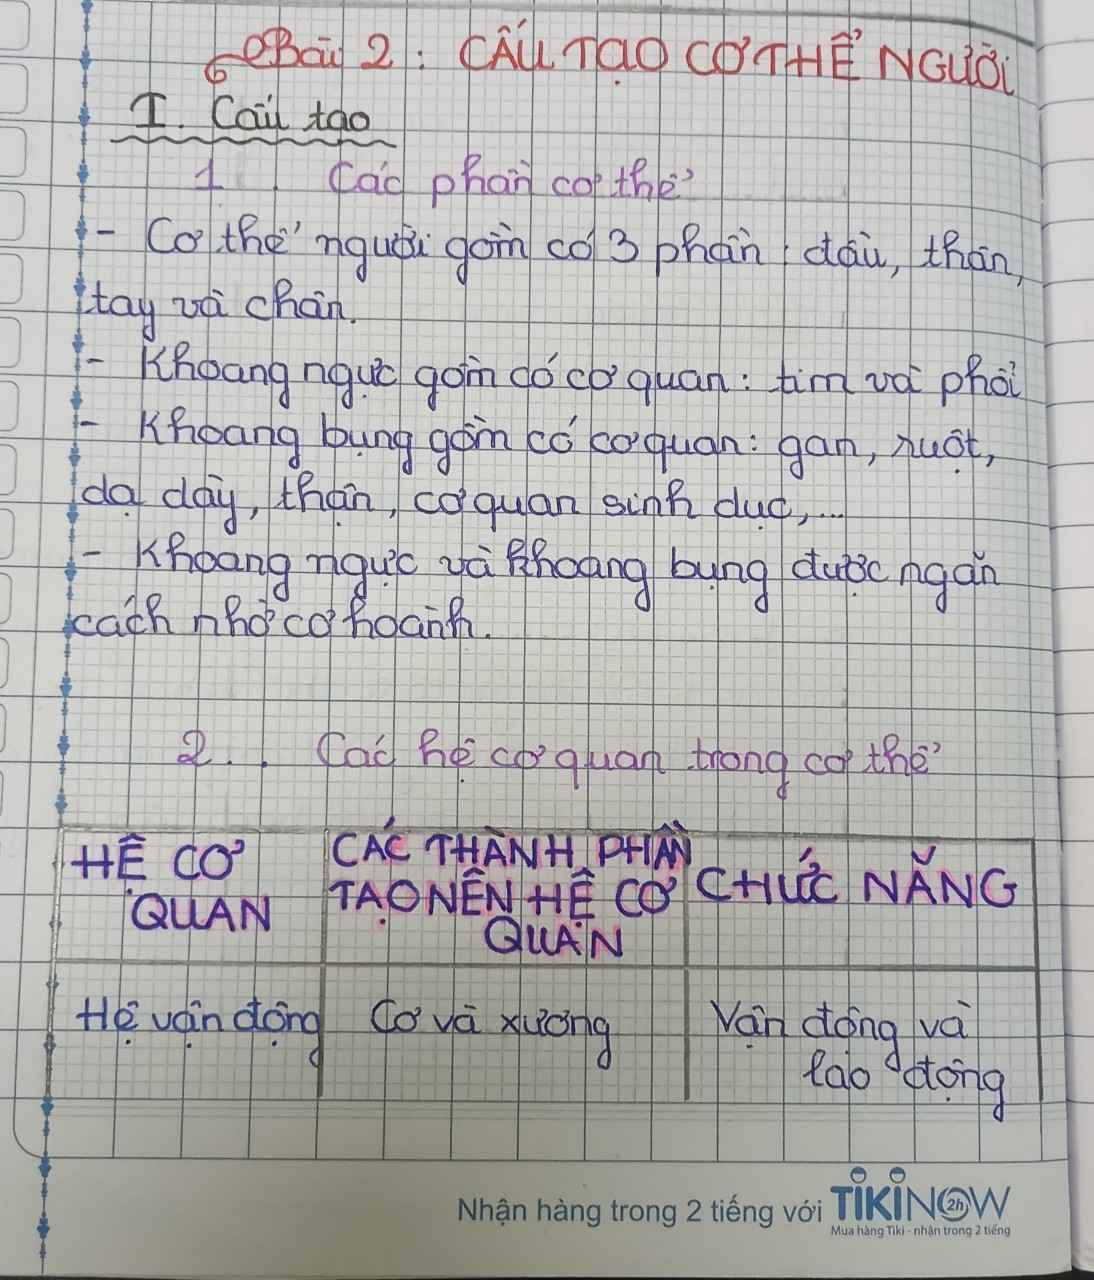 Bài 2: CẤU TẠO CƠ THỂ NGƯỜI
I. Cấu tạo
1. Các phần cơ thể
- Cơ thể người gồm có 3 phần: đầu, thân,
tay và chân.
- Khoang ngực gồm có cơ quan: tim và phổi
- Khoang bụng gồm có cơ quan: gan, ruột,
dạ dày, thận, cơ quan sinh dục,...
- Khoang ngực và khoang bụng được ngăn
cách nhờ cơ hoành.
2. Các hệ cơ quan trong cơ thể
HỆ CƠ
QUAN
CÁC THÀNH PHẦN
TẠO NÊN HỆ CƠ
QUAN
CHỨC NĂNG
Hệ vận động
Cơ và xương
Vận động và
lao động
Nhận hàng trong 2 tiếng với TIKINOW 2h
Mua hàng Tiki - nhận trong 2 tiếng